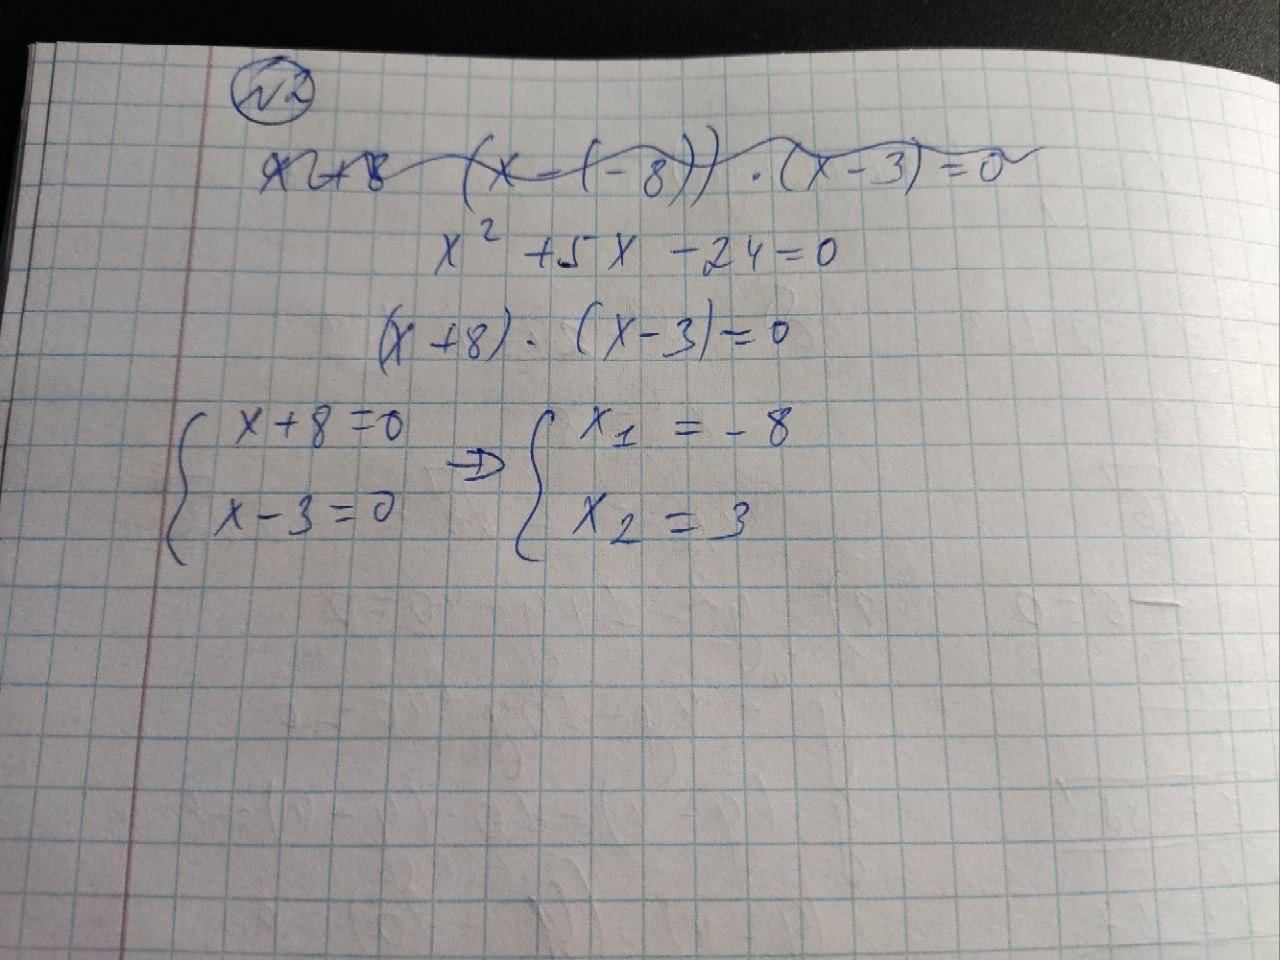 №2
x + 8 (x - (-8)) · (x - 3) = 0
x² + 5x - 24 = 0
(x + 8) · (x - 3) = 0
{ x + 8 = 0 ⇒ { x₁ = -8
{ x - 3 = 0 { x₂ = 3